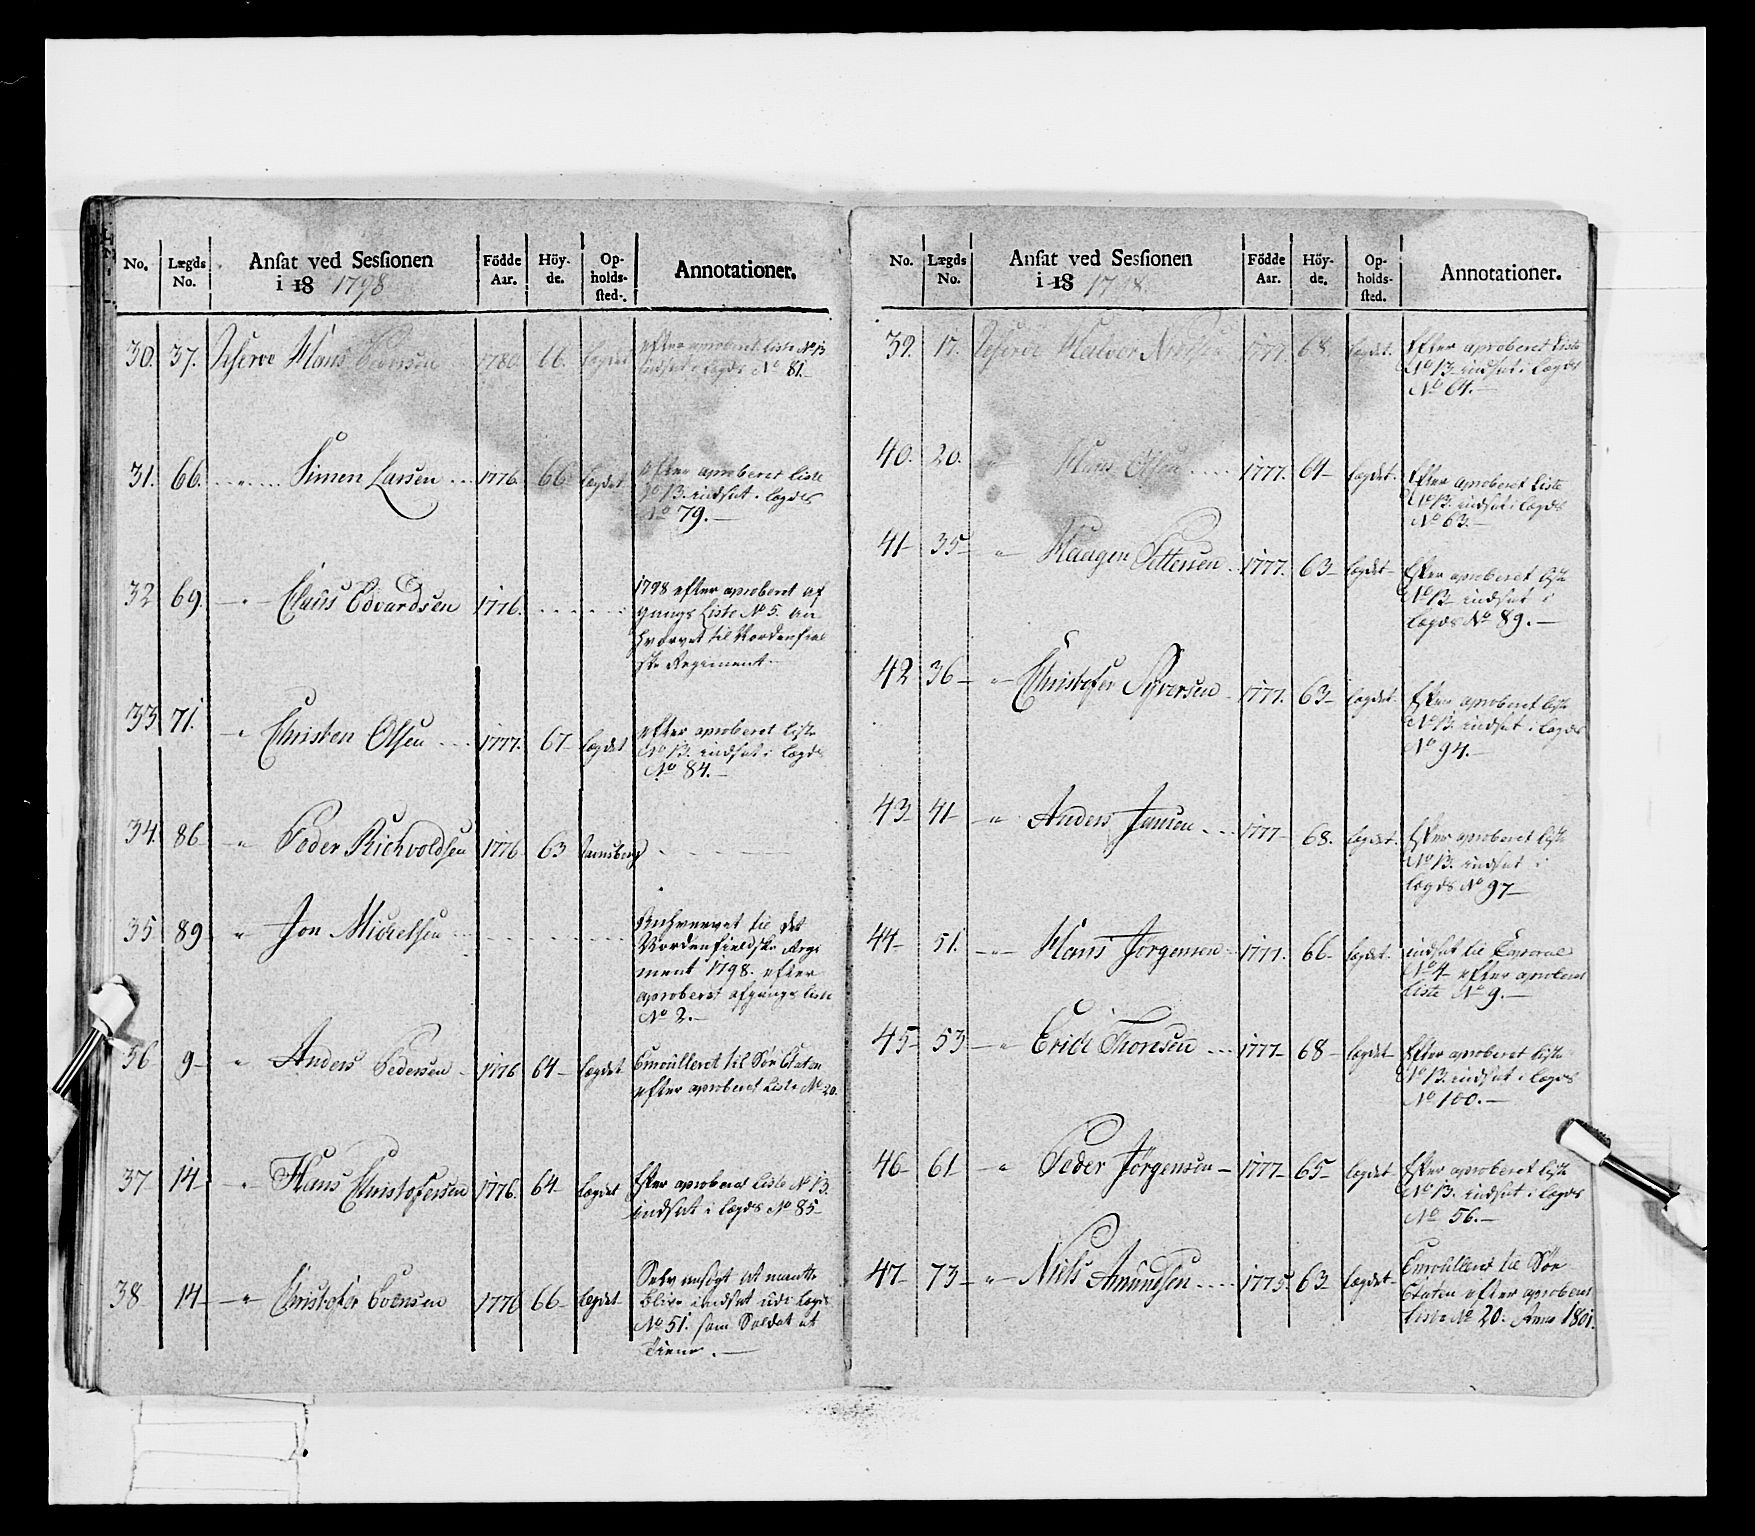 No. Lægds No. Ansat ved Sessionen i 18 1798 Födde Aar. Höyde. Opholds-sted. Annotationer.
30. 37. Reserve Hans Evensen 1780. 66. Lægdet efter aproberet Liste No 13
indsat i Lægds No 81.
31. 66. — " — Simen Larsen 1776. 66 Lægdet efter aproberet Liste
No 13. indsat i Lægds
No 79. —
32 69. — " — Claus Edvardsen 1776. 1798 efter aproberet af
gangs Liste No 5. an
hværvet til Nordenfiel
ske Regiment
33 71. " Christen Olsen 1777. 67 Lægdet efter aproberet Liste
No 13. indsat i Lægds
No 84. —
34. 86 " Peder Richvoldsen 1776 63
35 89 " Jon Michelsen Anhvervet til det
Nordenfieldske Regi
ment 1798. efter
aproberet afgangs Liste
No 2. —
36 9 " Anders Pedersen 1776 64 Lægdet Enroulleret til Söe Etaten
efter aproberet Liste No 20.
37 14 " Hans Christofersen 1776. 64 Lægdet Efter aproberet Liste No 13.
indsat i Lægds No 85
38 14 — " Christofer Evensen 1776 66 Lægdet Selv ansögt at maatte
blive indsat udi Lægd
No 51. som Soldat at
tiene. —
No. Lægds No. Ansat ved Sessionen i 18 1798 Födde Aar. Höyde. Opholds-sted. Annotationer.
39. 17. Reserve Halvor 1777. 68. Lægdet. Efter aproberet Liste
No 13 indsat i Lægds
No 64. —
40. 20. " Hans Olsen 1777. 64 Lægdet. Efter aproberet Liste
No 13. indsat i Lægds
No 63. —
41 35 " Haagen Pettersen 1777. 63 Lægdet Efter aproberet Liste
No 13 indsat i
Lægds No 89. —
42 36 " Christofer Syversen 1777. 63 Lægdet. Efter aproberet Liste
No 13. indsat i Lægds
No 94. —
43 41 " Anders Jansen 1777 68. Lægdet. Efter aproberet Liste
No 13. indsat i
Lægds No 97
44 51. " Hans Jörgensen 1777. 66 Lægdet. indsat til Corporal
No 4 efter aproberet
Liste No 9. —
45 53 " Erich Thorsen 1777 68 Lægdet Efter aproberet Liste
No 13. indsat i Lægds
No 100. —
46 61 " Peder Jörgensen 1777 65 Lægdet Efter aproberet Liste
No 13. indsat i Lægds
No 56. —
47 73 " Niels Amundsen 1775 63 Lægdet Enroulleret til Söe
Etaten efter aproberet
Liste No 20. Anno 1801.